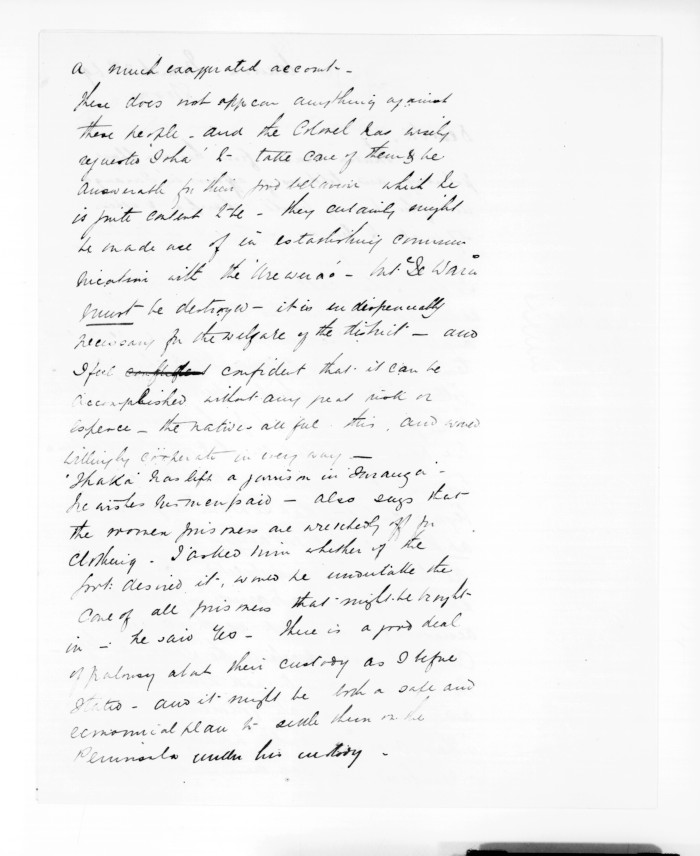 a much exaggerated account -
There does not appear anything against
these people - and the Colonel has wisely
requested 'Ihaka' to take care of them & be
answerable for their good behavior which he
is quite content to be - they certainly might
be made use of in establishing commu
nication with the 'Urewera' - but "Te Waru"
must be destroyed - it is indispensably
necessary for the welfare of the district - and
I feel confident confident that it can be
accomplished without any great risk or
expence - the natives all feel this, and would
willingly coöperate in every way -
'Ihaka' has left a garrison in 'Turanga' -
he wishes his men paid - also says that
the women prisoners are wretchedly off for
clothing - I asked him whether if the
Govt: desired it, would he undertake the
care of all prisoners that might be brought
in - he said Yes - There is a good deal
of jealousy about their custody as I before
stated - and it might be both a safe and
economical plan to settle them on the
Peninsula under his custody -